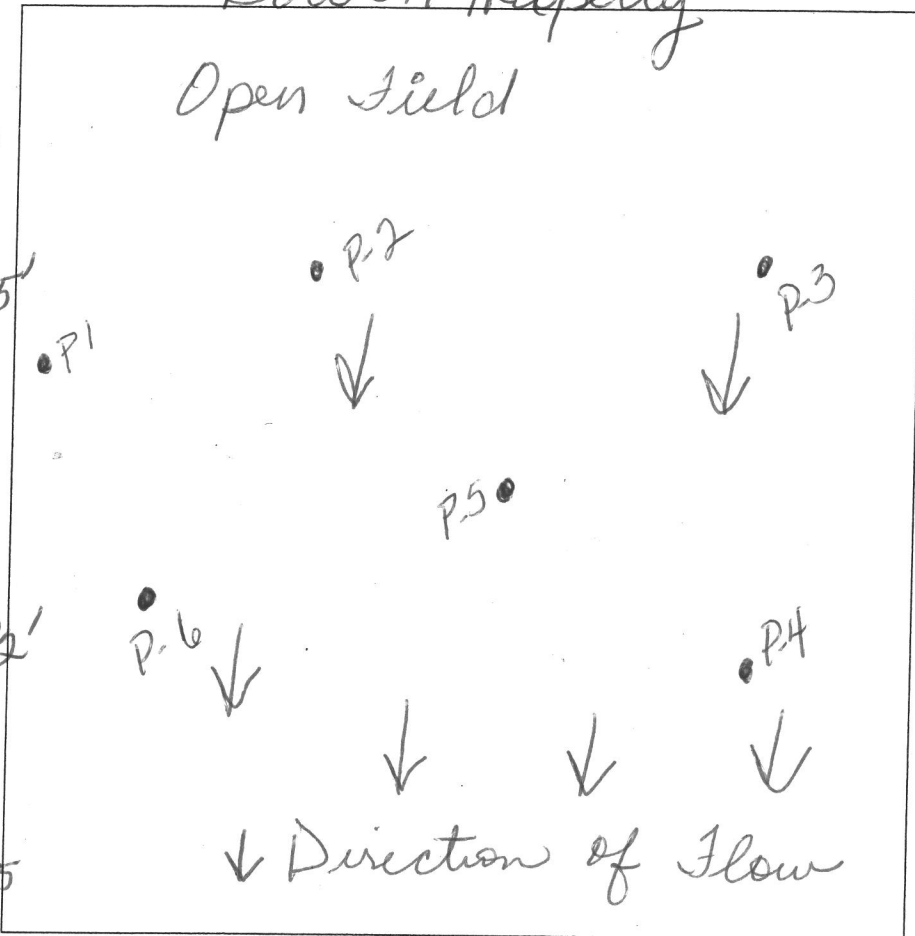 Open Field
P-2
P-3
5'
P1
P.5
P-6
2'
P.4
Direction of Flow
5